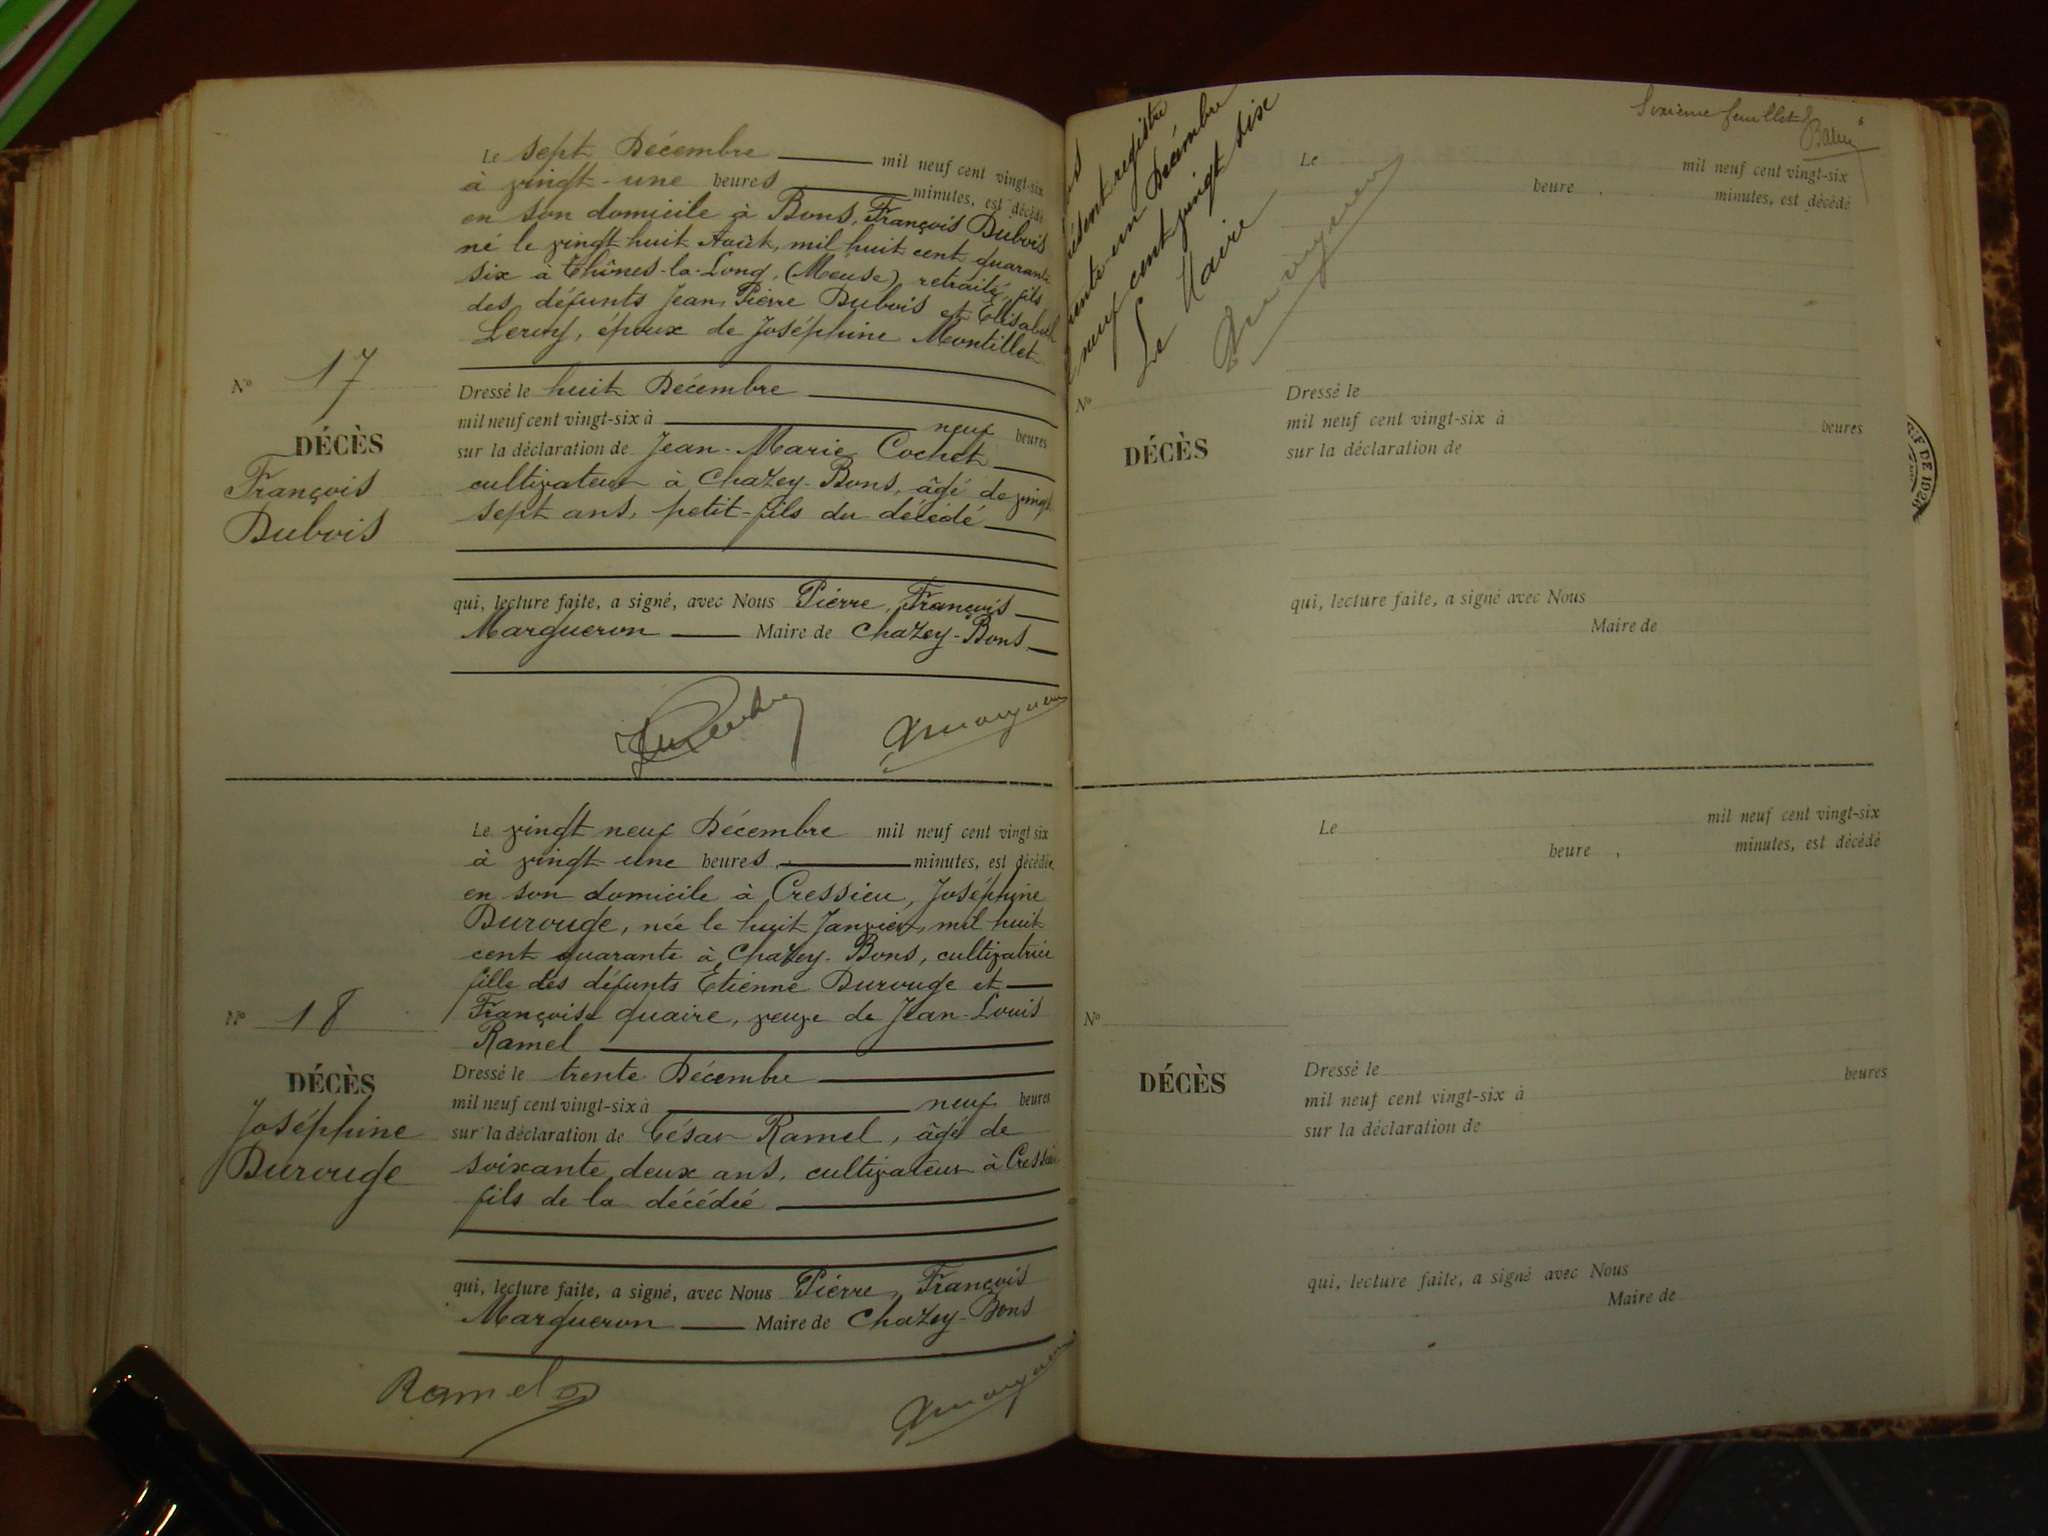 Le sept Décembre mil neuf cent vingt-six
à vingt-une heures minutes, est décédé
en son domicile à Bons, François Dubois
né le vingt huit Août, mil huit cent quarante
six à Chînes-la-Long, (Meuse), retraité, fils
des défunts Jean, Pierre Dubois et Élisabeth
Leruy, époux de Joséphine Montillet
N° 17
DÉCÈS
François
Dubois
Dressé le huit Décembre
mil neuf cent vingt-six à neuf heures
sur la déclaration de Jean-Marie Cochet
cultivateur à Chazey-Bons, âgé de vingt
sept ans, petit-fils du décédé
qui, lecture faite, a signé, avec Nous Pierre, François
Margueron Maire de Chazey-Bons
Le vingt neuf Décembre mil neuf cent vingt six
à vingt une heures, minutes, est décédée
en son domicile à Cressieu, Joséphine
Durouge, née le huit Janvier, mil huit
cent quarante à Chazey-Bons, cultivatrice
fille des défunts Etienne Durouge et
Françoise Quaire, veuve de Jean-Louis
Ramel
N° 18
DÉCÈS
Joséphine
Durouge
Dressé le trente Décembre
mil neuf cent vingt-six à neuf heures
sur la déclaration de César Ramel, âgé de
soixante deux ans, cultivateur à Cressieu
fils de la décédée
qui, lecture faite, a signé, avec Nous Pierre, François
Margueron Maire de Chazey-Bons
Ramel
Sixième feuillet
6
présent registre
trente-un Décembre
neuf cent vingt six
Le Maire
Le mil neuf cent vingt-six
heure minutes, est décédé
N°
DÉCÈS
Dressé le
mil neuf cent vingt-six à heures
sur la déclaration de
qui, lecture faite, a signé avec Nous
Maire de
Le mil neuf cent vingt-six
heure , minutes, est décédé
N°
DÉCÈS
Dressé le
mil neuf cent vingt-six à heures
sur la déclaration de
qui, lecture faite, a signé avec Nous
Maire de